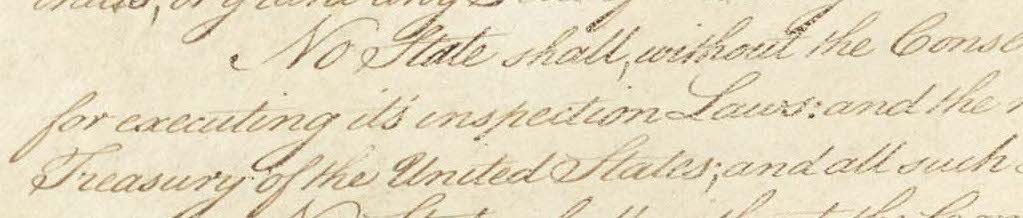 No State shall, without the Conse
for executing it's inspection Laws: and the
Treasury of the United States; and all such